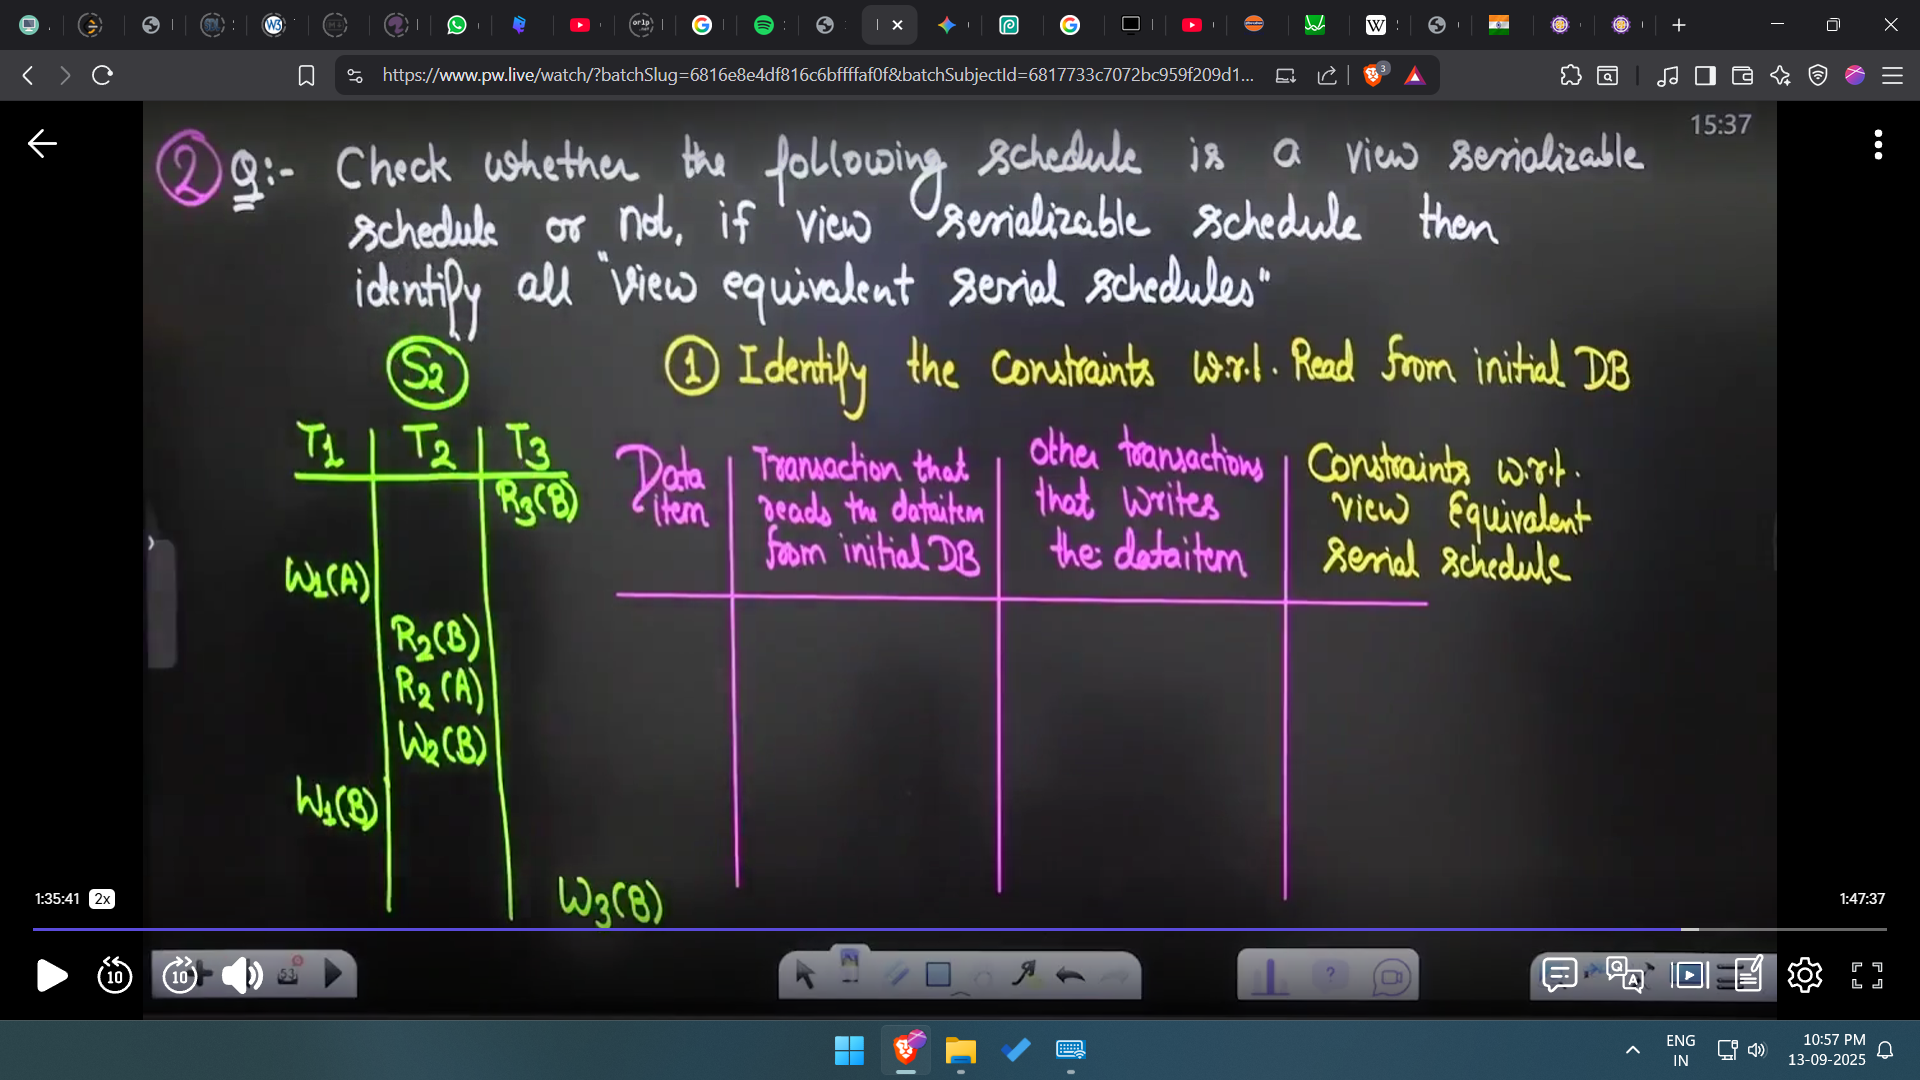 https://www.pw.live/watch/?batchSlug=6816e8e4df816c6bffffaf0f&batchSubjectId=6817733c7072bc959f209d1...
3
15:37
② Q:- Check whether the following schedule is a view serializable
schedule or not, if view serializable schedule then
identify all "View equivalent serial schedules"
S2
① Identify the Constraints w.r.t. Read from initial DB
T1 T2 T3
Data item
Transaction that
reads the dataitem
from initial DB
other transactions
that writes
the dataitem
Constraints w.r.t.
view Equivalent
serial schedule
R3(B)
W1(A)
R2(B)
R2(A)
W2(B)
W1(B)
W3(B)
1:35:41 2x
1:47:37
10
10
53
ENG
IN
10:57 PM
13-09-2025